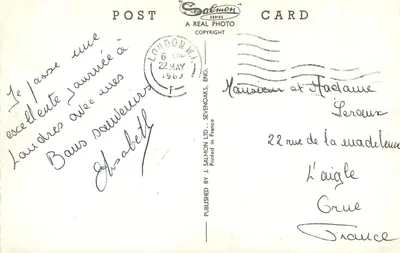 POST
"Salmon"
SERIES
A REAL PHOTO
COPYRIGHT
CARD
LONDON W.1
22 MAY
1963
F
Je passe une
excellente journée à
Londres avec mes
Bons souvenirs
PUBLISHED BY J. SALMON LTD., SEVENOAKS, ENG.
Printed in France
Monsieur et Madame
Leroux
22 rue de la madeleine
L'aigle
Orne
France